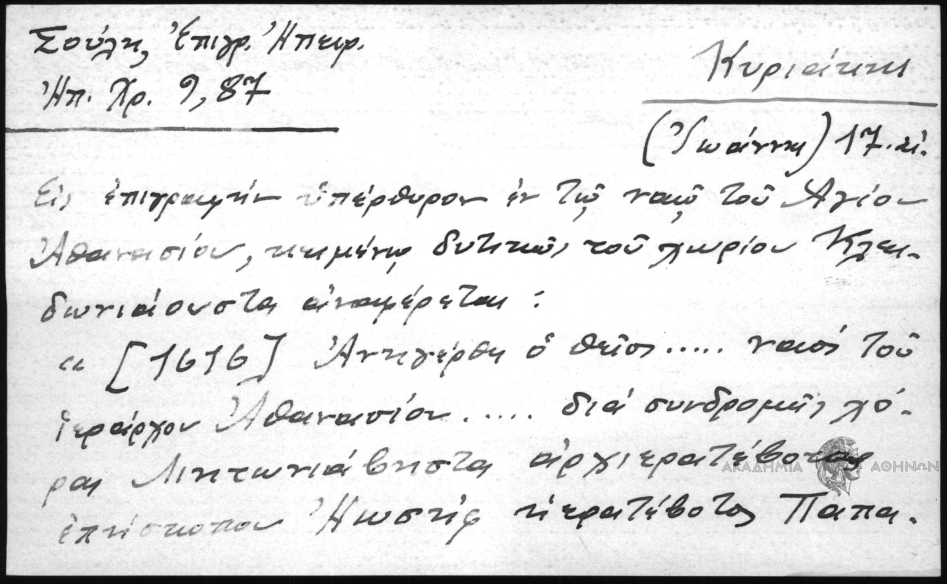 Σούλη, Ἐπιγρ. Ἠπειρ.
Ἠπ. Χρ. 9, 87
Κυριάκης
(Ἰωάννης) 17. αἰ.
Εἰς ἐπιγραφὴν ὑπέρθυρον ἐν τῷ ναῷ τοῦ Ἁγίου
Ἀθανασίου, κειμένῳ δυτικῶς τοῦ χωρίου Κλει-
δωνιάουστα ἀναφέρεται:
« [1616] Ἀνηγέρθη ὁ θεῖος ..... ναός τοῦ
ἱεράρχου Ἀθανασίου ..... διά συνδρομῆς χό-
ρας ἀρχιερατέβοτος
ἐπησκόπου Ἠωσήφ ηερατέβοτος Παπα-
ΑΚΑΔΗΜΙΑ ΑΘΗΝΩΝ